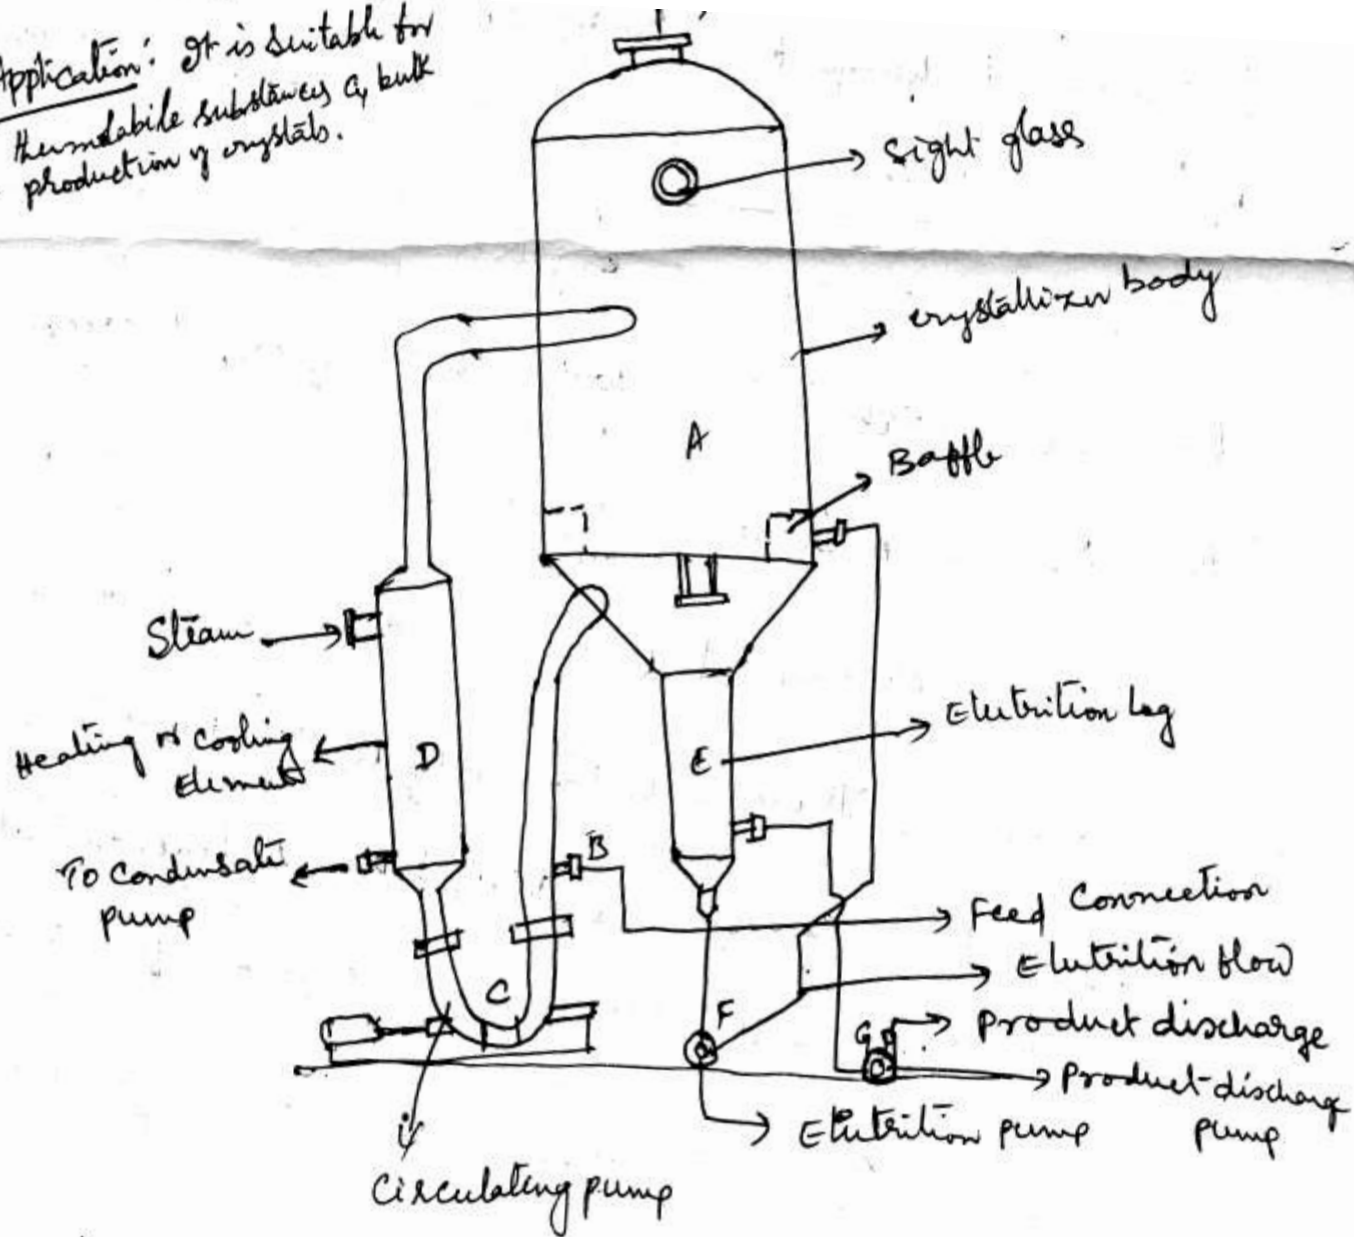 Application: It is suitable for
thermolabile substances & bulk
production of crystals.
Sight glass
crystallizer body
A
Baffle
Steam
Elutrition Leg
Heating or Cooling
Element
D
E
B
To Condensate
pump
Feed Connection
Elutrition flow
C
F
G
Product discharge
Product discharge
pump
Elutrition pump
Circulating pump